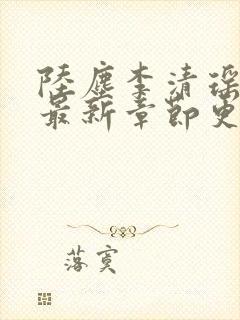 陸塵李清瑤
最新章節更
落寞